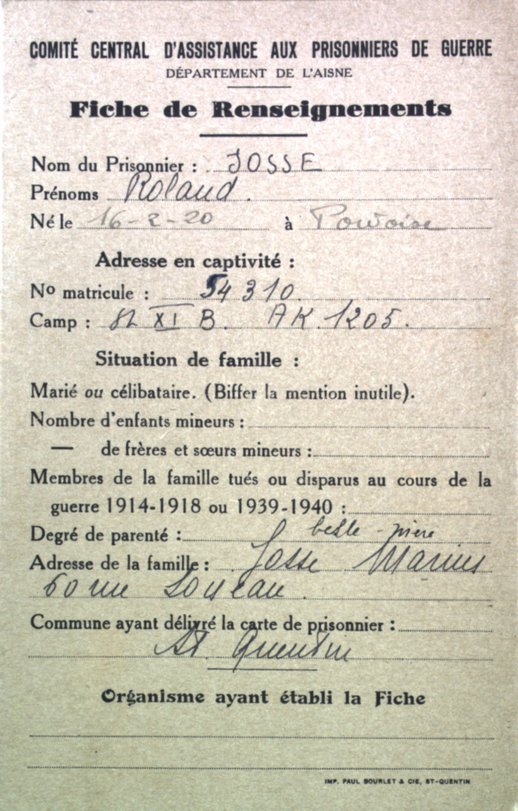 COMITÉ CENTRAL D'ASSISTANCE AUX PRISONNIERS DE GUERRE
DÉPARTEMENT DE L'AISNE
Fiche de Renseignements
Nom du Prisonnier : JOSSE
Prénoms Roland.
Né le 16-2-20 à
Adresse en captivité :
No matricule : 54310
Camp : XI B. AK. 1205.
Situation de famille :
Marié ou célibataire. (Biffer la mention inutile).
Nombre d'enfants mineurs :
— de frères et sœurs mineurs :
Membres de la famille tués ou disparus au cours de la
guerre 1914-1918 ou 1939-1940 :
Degré de parenté : belle-mère
Adresse de la famille : Josse Marius
60 rue
Commune ayant délivré la carte de prisonnier :
St. Quentin
Organisme ayant établi la Fiche
IMP. PAUL BOURLET & CIE, ST-QUENTIN